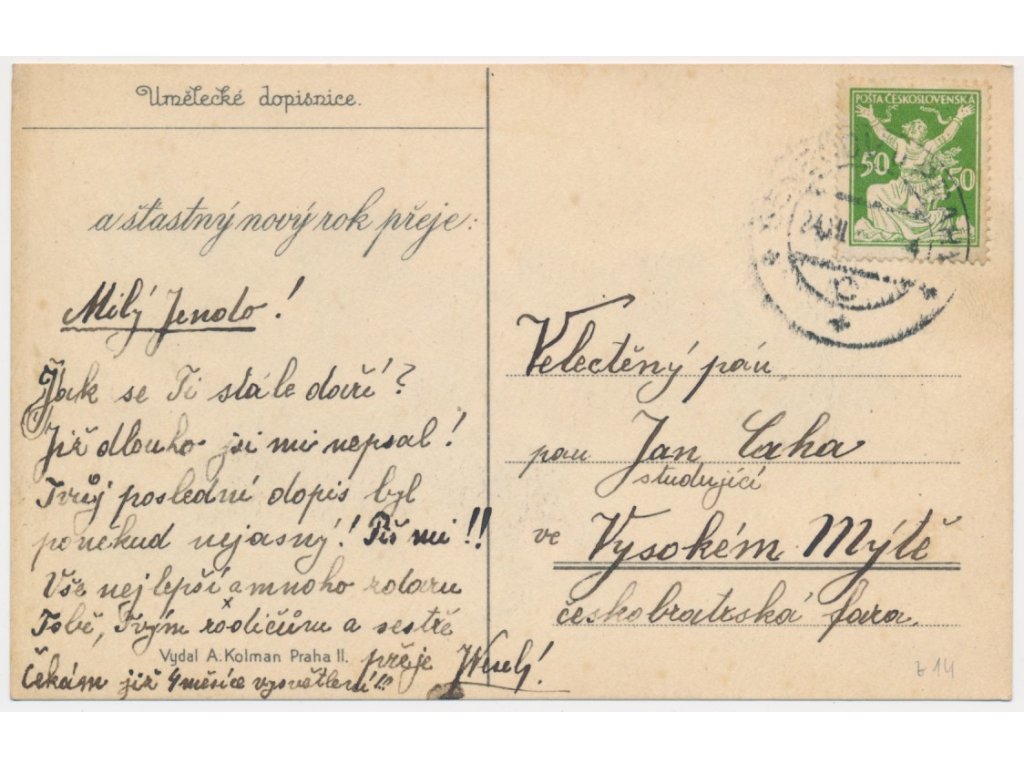 Umělecké dopisnice.
a šťastný nový rok přeje:
Milý Jendo!
Jak se Ti stále daří?
Již dlouho jsi mi nepsal!
Tvůj poslední dopis byl
poněkud nejasný! Piš mi!!
Vše nejlepší a mnoho zdaru
Tobě, Tvým rodičům a sestře
Vydal A. Kolman Praha II.
přeje
Čekám již 4 měsíce vysvětlení!!
POŠTA ČESKOSLOVENSKA
50 50
Velectěný pán
pan Jan Caha
studující
ve Vysokém Mýtě
českobratrská fara.
z 14